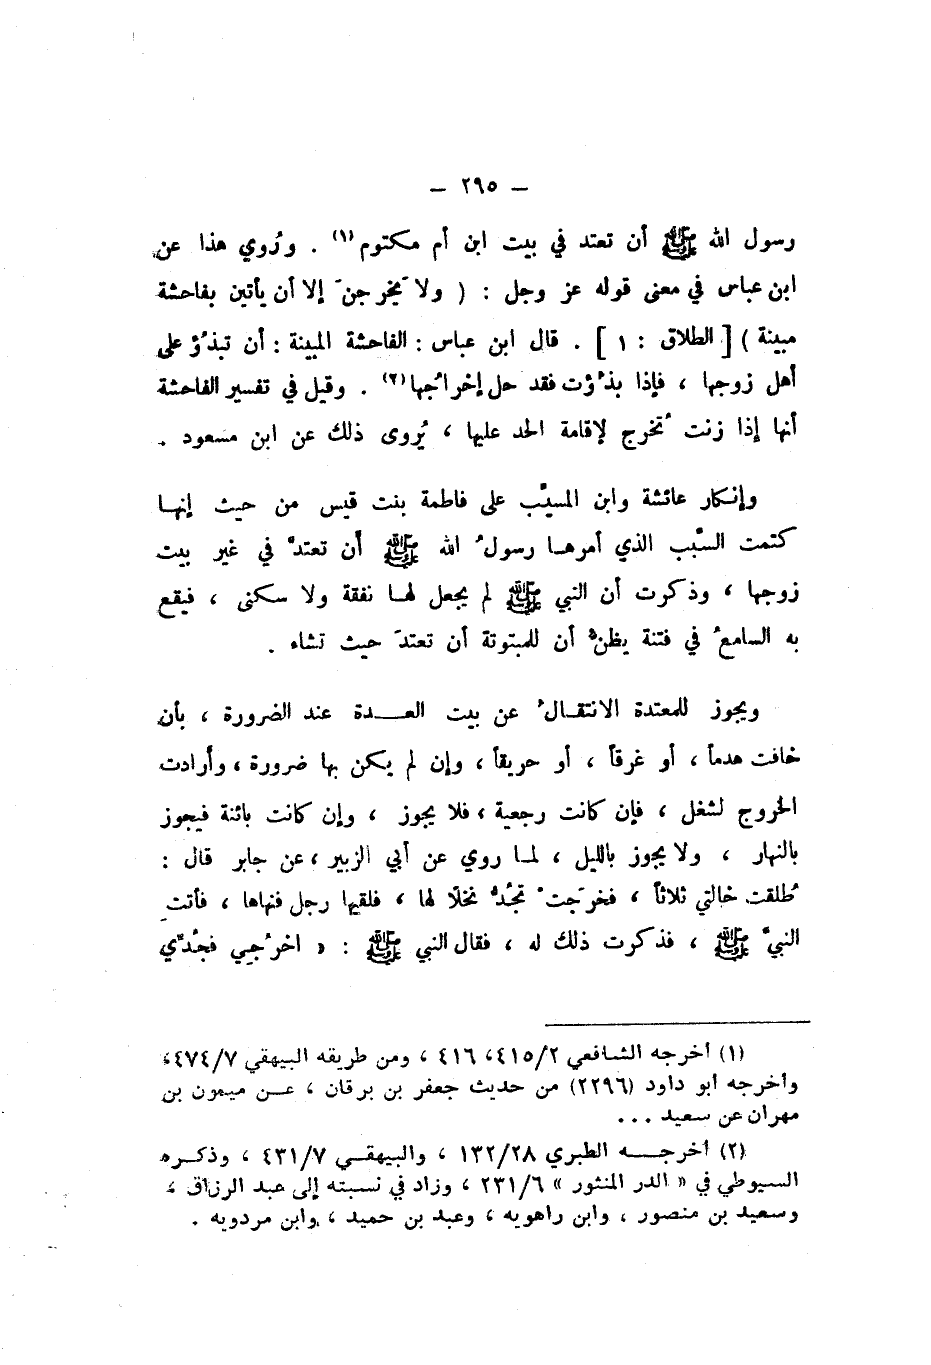 — ٢٩٥ —
رسول الله ﷺ أن تعتد في بيت ابن أم مكتوم (١) . ورُوي هذا عن
ابن عباس في معنى قوله عز وجل : ( ولا يَخرجنَ إلا أن يأتين بفاحشة
مبينة ) [ الطلاق : ١ ] . قال ابن عباس : الفاحشة المبينة : أن تبذُؤ على
أهل زوجها ، فإذا بذُؤت فقد حل إخراجُها (٢) . وقيل في تفسير الفاحشة
أنها إذا زنت تُخرج لإقامة الحد عليها ، يُروى ذلك عن ابن مسعود .
وإنكار عائشة وابن المسيَّب على فاطمة بنت قيس من حيث إنها
كتمت السَّبب الذي أمرها رسولُ الله ﷺ أن تعتدَّ في غير بيت
زوجها ، وذكرت أن النبي ﷺ لم يجعل لها نفقة ولا سكنى ، فيقع
به السامعُ في فتنة يظنُّ أن للمبتوتة أن تعتدَ حيث تشاء .
ويجوز للمعتدة الانتقالُ عن بيت العدة عند الضرورة ، بأن
خافت هدماً ، أو غرقاً ، أو حريقاً ، وإن لم يكن بها ضرورة ، وأرادت
الخروج لشغل ، فإن كانت رجعية ، فلا يجوز ، وإن كانت بائنة فيجوز
بالنهار ، ولا يجوز بالليل ، لما روي عن أبي الزبير ، عن جابر قال :
طُلقت خالتي ثلاثاً ، فخرَجتْ تجُدُّ نخلًا لها ، فلقيها رجل فنهاها ، فأتت
النبيَّ ﷺ ، فذكرت ذلك له ، فقال النبي ﷺ : « اخرُجي فجُدِّي
(١) أخرجه الشافعي ٤١٥/٢، ٤١٦ ، ومن طريقه البيهقي ٤٧٤/٧،
وأخرجه أبو داود (٢٢٩٦) من حديث جعفر بن برقان ، عن ميمون بن
مهران عن سعيد ...
(٢) أخرجه الطبري ١٣٢/٢٨ ، والبيهقي ٤٣١/٧ ، وذكره
السيوطي في « الدر المنثور » ٢٣١/٦ ، وزاد في نسبته إلى عبد الرزاق ،
وسعيد بن منصور ، وابن راهويه ، وعبد بن حميد ، وابن مردويه .